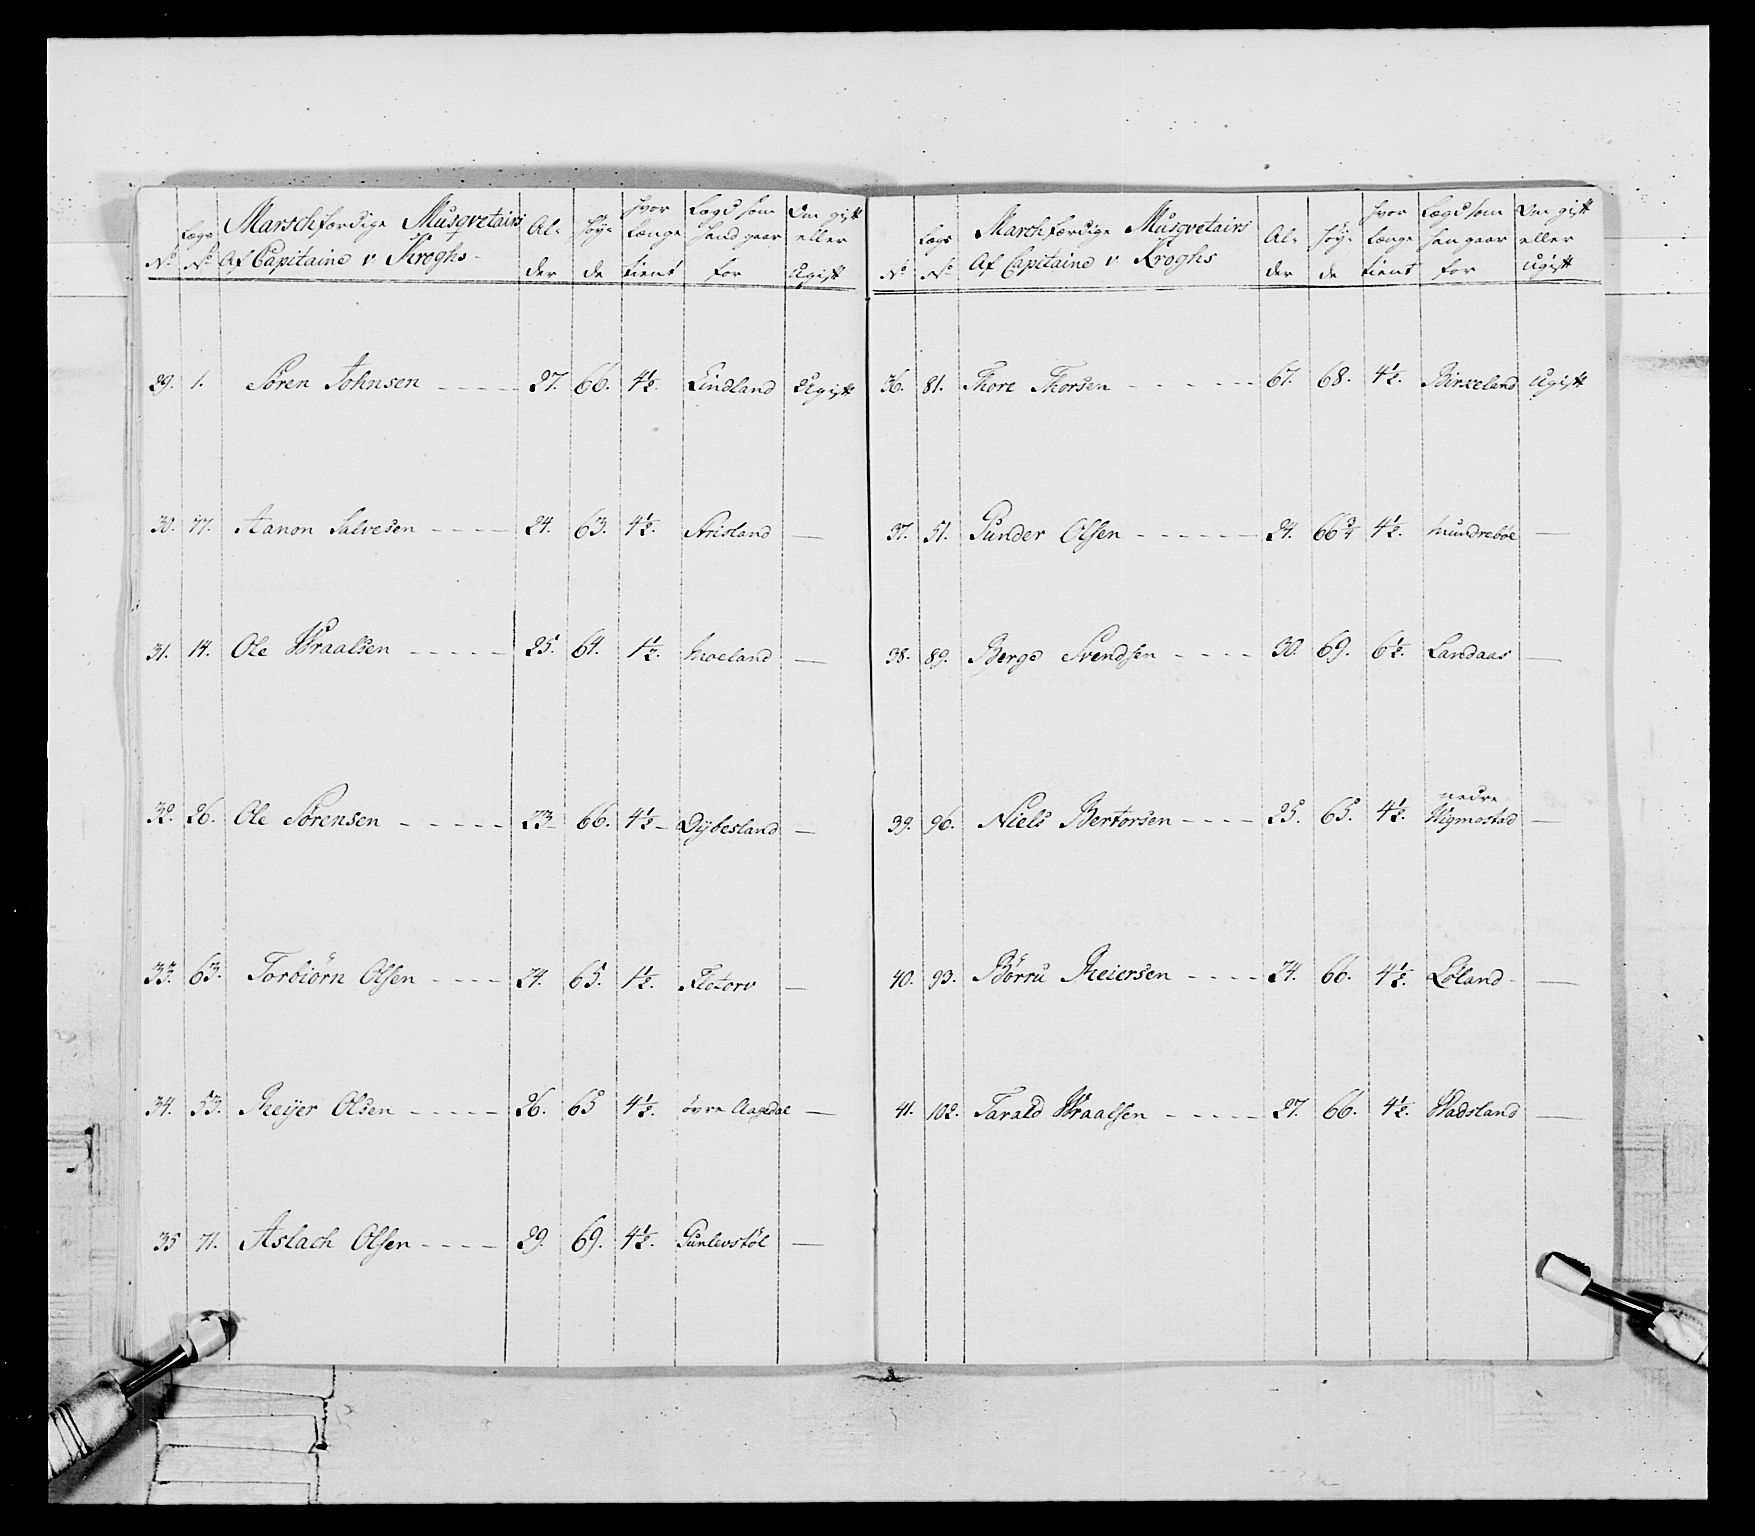 No Lægs No Marschfærdige Musqvetairs Af Capitaine v Kroghs Al- der Høy- de Hvor Længe tient Lægd som Hand gaar for Om gift eller Ugift
29. 1. Sören Johnsen 27. 66. 4½. Lindland Ugift
30. 77. Aanon Salvesen 24. 63. 4½. —
31. 14. Ole Wraalsen 25. 64. 1½. Moeland —
32. 26. Ole Sörensen 23 66. 4½ Dybesland —
33. 63. Torbiörn Olsen 24. 65. 1½. —
34. 53. Reyer Olsen 26. 65 4½. övre Aagedal —
35 71. Aslach Olsen 29. 69. 4½. Gunlevstöl —
No Lægs No Marchfærdige Musqvetairs Af Capitaine v Kroghs Al- der Høy- de Hvor Længe tient Lægd som Han gaar for Om gift eller Ugift
36. 81. Thore Thorsen 67. 68. 4½. Birkeland Ugift
37. 51. Gunder Olsen 24. 66¾ 4½. Mundreböe —
38. 89. Berge Svendsen 30. 69. 6½. Landaas —
39. 96. Niels Bertorsen 25. 65. 4½. nedre Wigmostad —
40. 93. Börru Reiersen 24. 66. 4½. Löland —
41. 102. Tarald Wraalsen 27. 66. 4½. Wadsland —